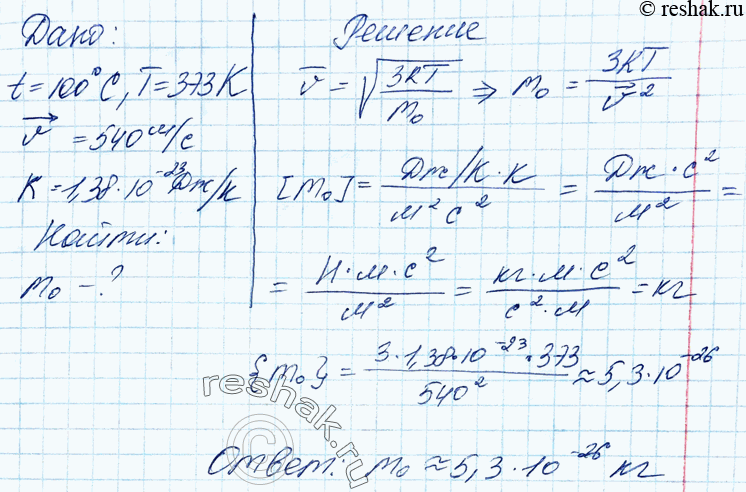 © reshak.ru
Дано:
t=100°C, T=373K
v⃗ = 540 м/с
K=1,38·10^-23 Дж/К
Найти:
m₀ - ?
Решение
v̅ = √(3KT/m₀) ⇒ m₀ = 3KT/v̅²
[m₀] = (Дж/К·К)/(м² с²) = (Дж·с²)/м² =
= (Н·м·с²)/м² = (кг·м·с²)/(с²·м) = кг
{m₀} = (3·1,38·10^-23·373)/540² ≈ 5,3·10^-26
Ответ: m₀ ≈ 5,3·10^-26 кг
reshak.ru